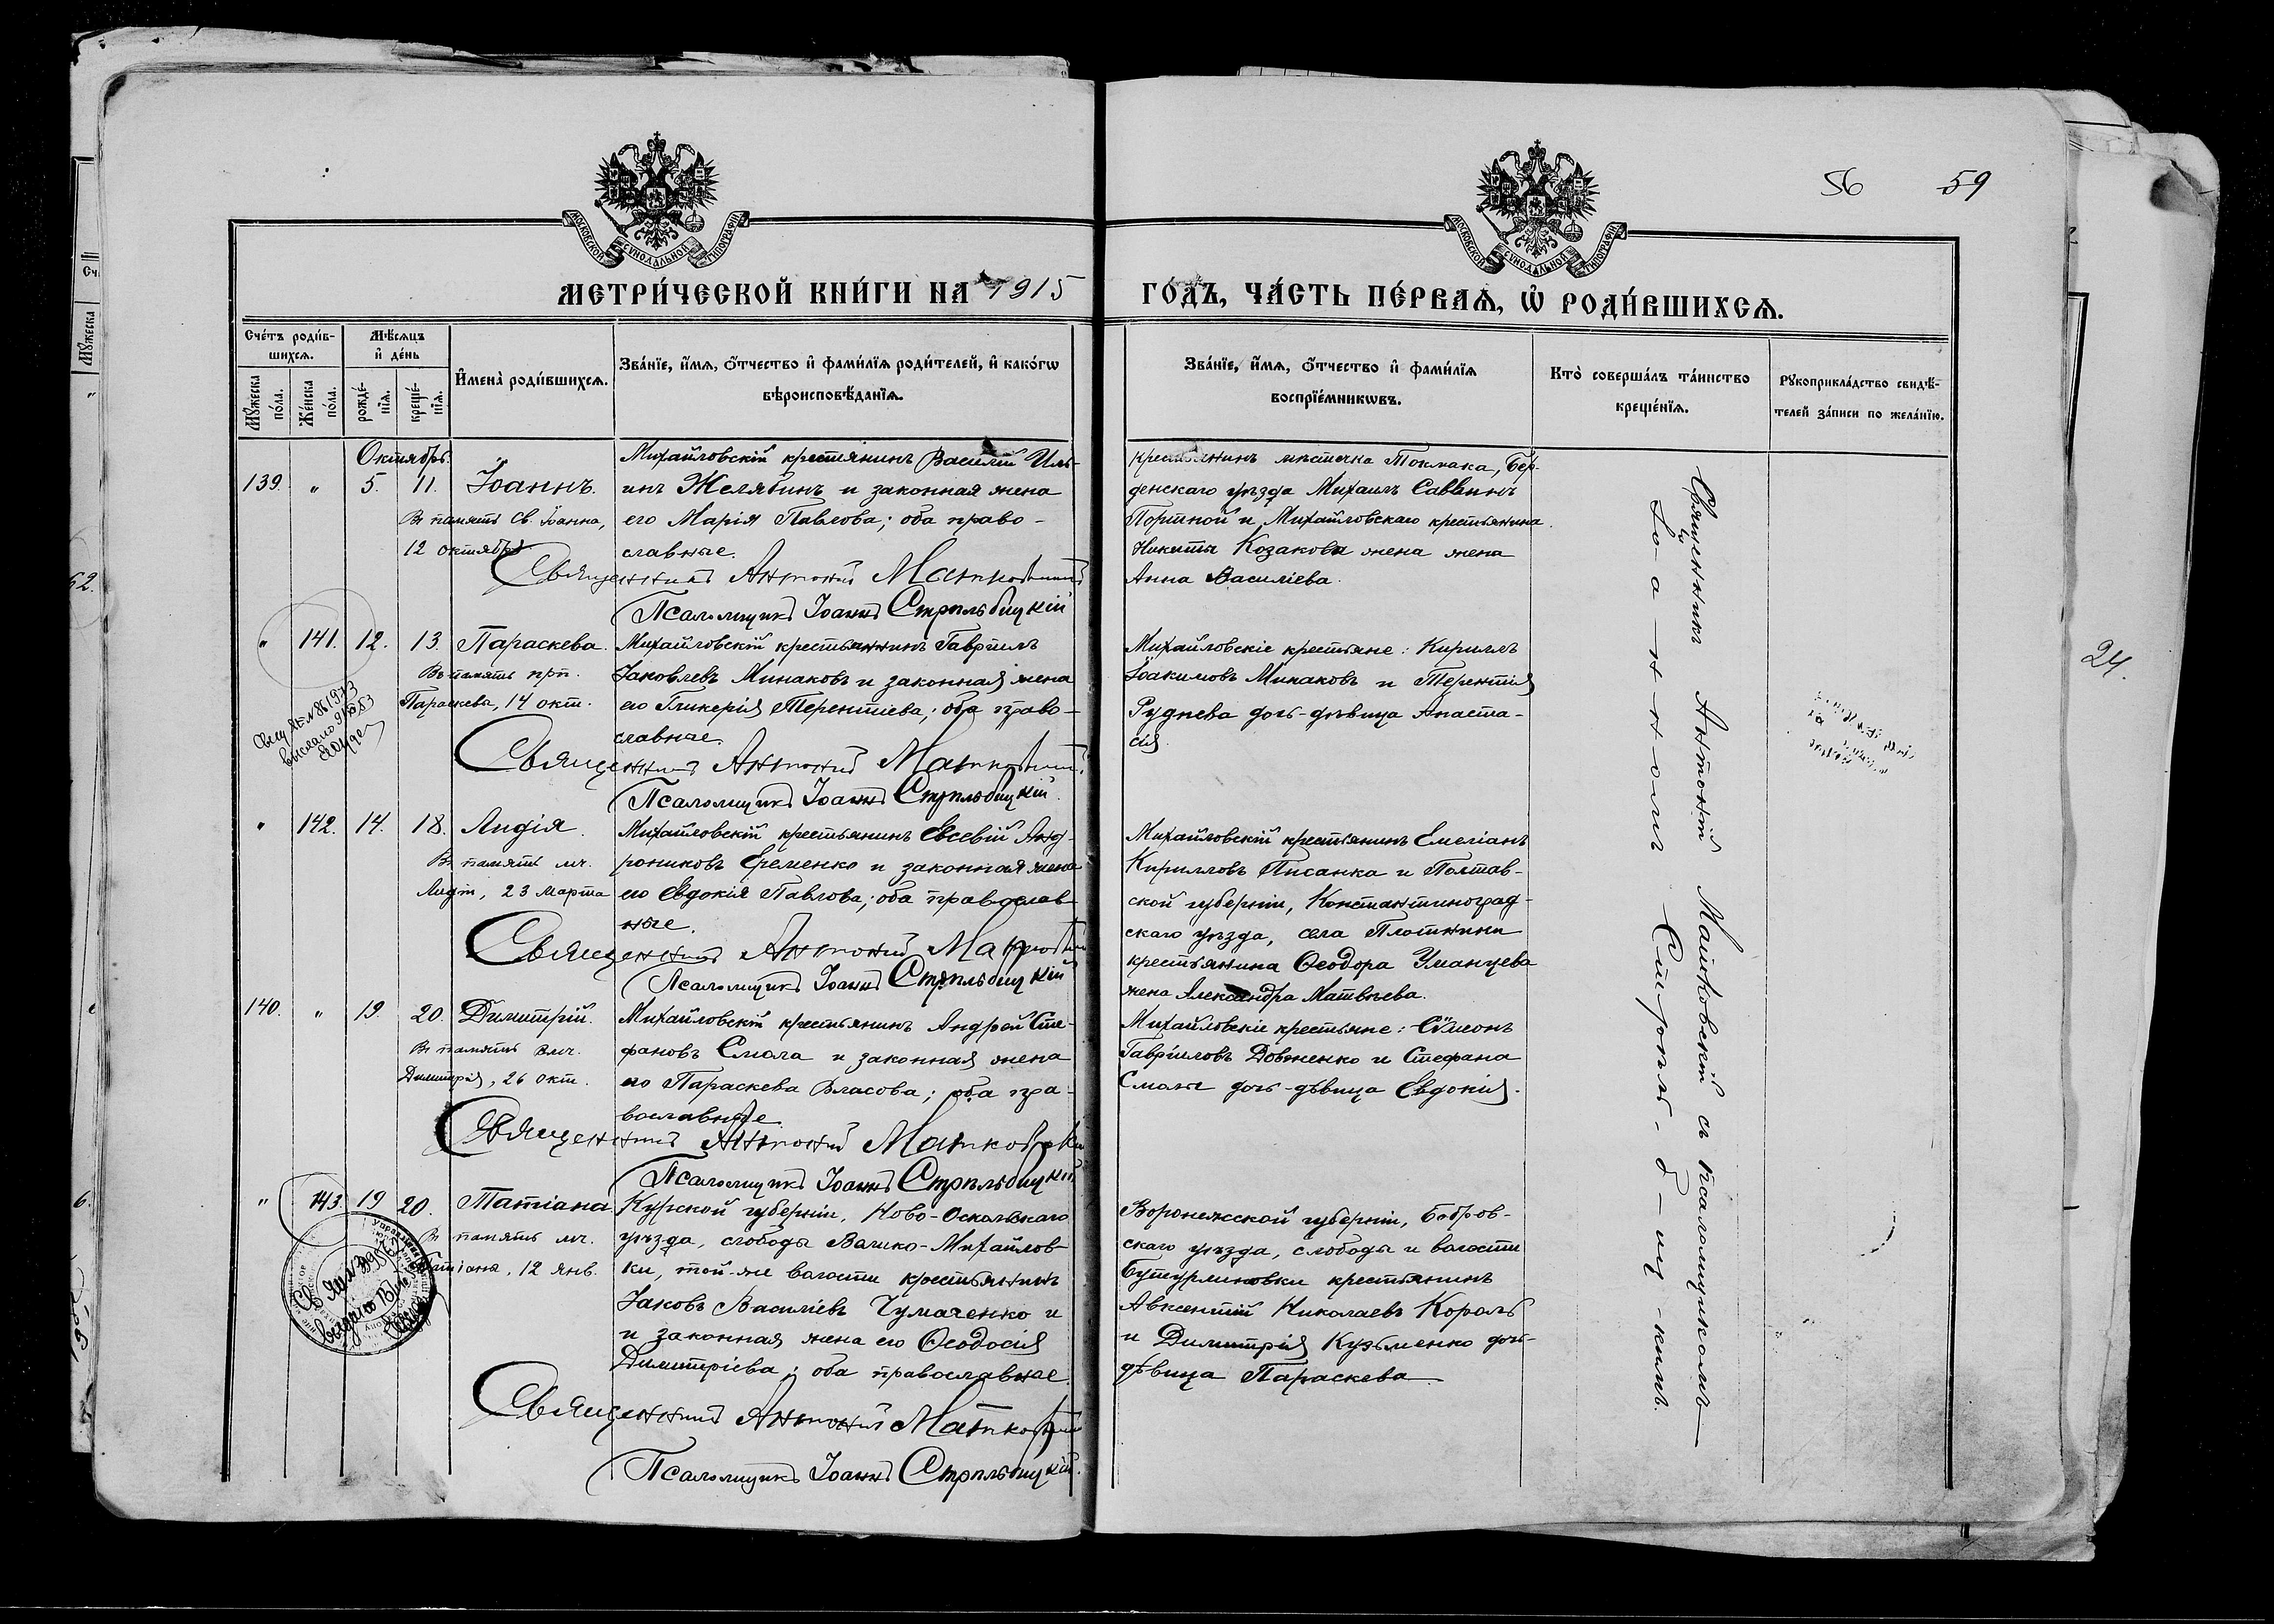 56 59
МОСКОВСКОЙ СѴНОДАЛЬНОЙ ТИПОГРАФІИ
МОСКОВСКОЙ СѴНОДАЛЬНОЙ ТИПОГРАФІИ
МЕТРИ́ЧЕСКОЙ КНИ́ГИ НА 1915
ГО́ДЪ, ЧА́СТЬ ПЕ́РВАѦ, Ѡ҆ РОДИ́ВШИХСѦ.
Сче́тъ роди́в-
шихсѧ.
Мѣ́сѧцъ
и҆ де́нь
Мꙋ́жеска
по́ла.
Же́нска
по́ла.
рожде́-
нїѧ.
креще́-
нїѧ.
И҆мена̀ роди́вшихсѧ.
Зва́нїе, и҆́мѧ, ѻ҆́тчество и҆ фами́лїѧ роди́телей, и҆ како́гѡ
вѣроисповѣ́данїѧ.
Зва́нїе, и҆́мѧ, ѻ҆́тчество и҆ фами́лїѧ
воспрїе́мникѡвъ.
Кто̀ соверша́лъ та́инство
креще́нїѧ.
Рꙋкоприкла́дство свидѣ́-
телей за́писи по жела́нїю.
Октябрь.
139. " 5. 11. Іоаннъ.
Въ память св. Іоанна,
12 октября
Михайловскій крестьянинъ Василій Иль-
инъ Желябинъ и законная жена
его Марія Павлова; оба право-
славные.
Священникъ Антоній Матковскій
Псаломщикъ Іоаннъ Стрѣльбицкій
крестьянинъ мѣстечка Токмака, Бер-
дянскаго уѣзда Михаилъ Саввинъ
Портной и Михайловскаго крестьянина
Никиты Козакова жена жена
Анна Василіева.
" 141. 12. 13. Параскева.
Въ память прп.
Параскева, 14 окт.
Михайловскій крестьянинъ Гавріилъ
Іаковлевъ Минаковъ и законная жена
его Гликерія Терентіева; оба право-
славные.
Священникъ Антоній Матковскій
Псаломщикъ Іоаннъ Стрѣльбицкій.
Михайловскіе крестьяне: Кириллъ
Іоакимовъ Минаковъ и Терентія
Руднева дочь-дѣвица Анаста-
сія.
" 142. 14. 18. Лидія.
Въ память мч.
Лидіи, 23 марта
Михайловскій крестьянинъ Евсевій Анд-
рониковъ Еременко и законная жена
его Евдокія Павлова; оба православ-
ные.
Священникъ Антоній Матковскій
Псаломщикъ Іоаннъ Стрѣльбицкій
Михайловскій крестьянинъ Емеліанъ
Кирилловъ Писанка и Полтав-
ской губерніи, Константиноград-
скаго уѣзда, села
крестьянина Ѳеодора Уманцева
жена Александра Матвѣева.
140. " 19. 20. Димитрій.
Въ память вмч.
Димитрія, 26 окт.
Михайловскій крестьянинъ Андрей Сте-
фановъ Смола и законная жена
его Параскева Власова; оба пра-
вославные
Священникъ Антоній Матковскій
Псаломщикъ Іоаннъ Стрѣльбицкій
Михайловскіе крестьяне: Сѵмеонъ
Гавріиловъ Довженко и Стефана
Смолы дочь-дѣвица Евдокія.
" 143. 19 20. Татіана
Въ память мч.
Татіана, 12 янв.
Курской губерніи, Ново-Оскольскаго
уѣзда, слободы Велико-Михайлов-
ки, той-же волости крестьянинъ
Іаковъ Василіевъ Чумаченко и
и законная жена его Ѳеодосія
Димитріева; оба православные.
Священникъ Антоній Матковскій
Псаломщикъ Іоаннъ Стрѣльбицкій.
Воронежской губерніи, Бобров-
скаго уѣзда, слободы и волости
Бутурлиновки крестьянинъ
Авксентій Николаевъ Король
и Димитрія Кузьменко дочь-
дѣвица Параскева
Священникъ Антоній Матковскій съ псаломщикомъ
Іоанномъ Стрѣль-б-иц-кимъ.
24.